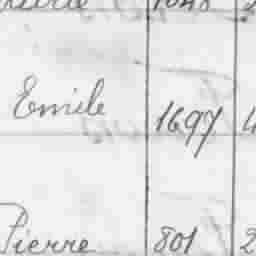 Emile 1697 4
Pierre 801 2